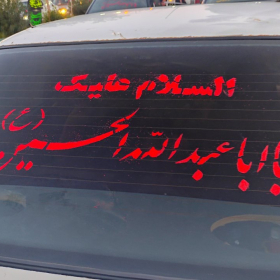 السلام علیک
یا اباعبدالله الحسین (ع)